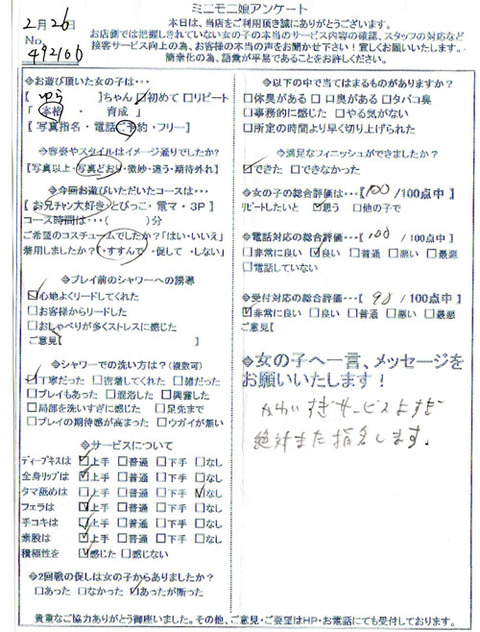 ミニモニ娘アンケート
2月26日
本日は、当店をご利用頂き誠にありがとうございます。
No. 492100
お店側では把握しきれていない女の子の本当のサービス内容の確認、スタッフの対応など
接客サービス向上の為、お客様の本当の声をお聞かせ下さい!宜しくお願いいたします。
簡素化の為、語彙が平易であることをお許しください。
◇お遊び頂いた女の子は・・・
【 ゆら 】ちゃん ☑初めて □リピート
「 本格 ・ 育成 」
【 写真指名・電話ご予約・フリー】
◇容姿やスタイルはイメージ通りでしたか?
【写真以上・写真どおり・微妙・違う・期待外れ】
◇今回お遊びいただいたコースは・・・
【お兄チャン大好き・とびっこ・電マ・3P】
コース時間は・・・( )分
ご希望のコスチュームでしたか?「はい・いいえ」
着用しましたか?・すすんで・促して・しない)
◇プレイ前のシャワーへの誘導
☑心地よくリードしてくれた
□お客様からリードした
□おしゃべりが多くストレスに感じた
ご意見【 】
◇シャワーでの洗い方は?(複数可)
☑丁寧だった □密着してくれた □雑だった
□プレイもあった □混浴した □興奮した
□局部を洗いすぎに感じた □足先まで
□プレイの期待感が高まった □ウガイが無い
◇サービスについて
ディープキスは ☑上手 □普通 □下手 □なし
全身リップは ☑上手 □普通 □下手 □なし
タマ舐めは □上手 □普通 □下手 ☑なし
フェラは ☑上手 □普通 □下手 □なし
手コキは ☑上手 □普通 □下手 □なし
素股は ☑上手 □普通 □下手 □なし
積極性を ☑感じた □感じない
◇2回戦の促しは女の子からありましたか?
□あった □なかった ☑あったが断った
◇以下の中で当てはまるものがありますか?
□体臭がある □口臭がある □タバコ臭
□事務的に感じた □やる気がない
□所定の時間より早く切り上げられた
◇満足なフィニッシュができましたか?
☑できた □できなかった
◇女の子の総合評価は・・・【 100 /100点中】
リピートしたいと ☑思う □他の子で
◇電話対応の総合評価・・・【 100 /100点中】
□非常に良い ☑良い □普通 □悪い □最悪
□電話していない
◇受付対応の総合評価・・・【 98 /100点中】
☑非常に良い □良い □普通 □悪い □最悪
ご意見【 】
◇女の子へ一言、メッセージを
お願いいたします!
かわいすぎサービスよすぎ
絶対また指名します。
貴重なご協力ありがとう御座いました。その他、ご意見・ご要望はHP・お電話にても受付しております。